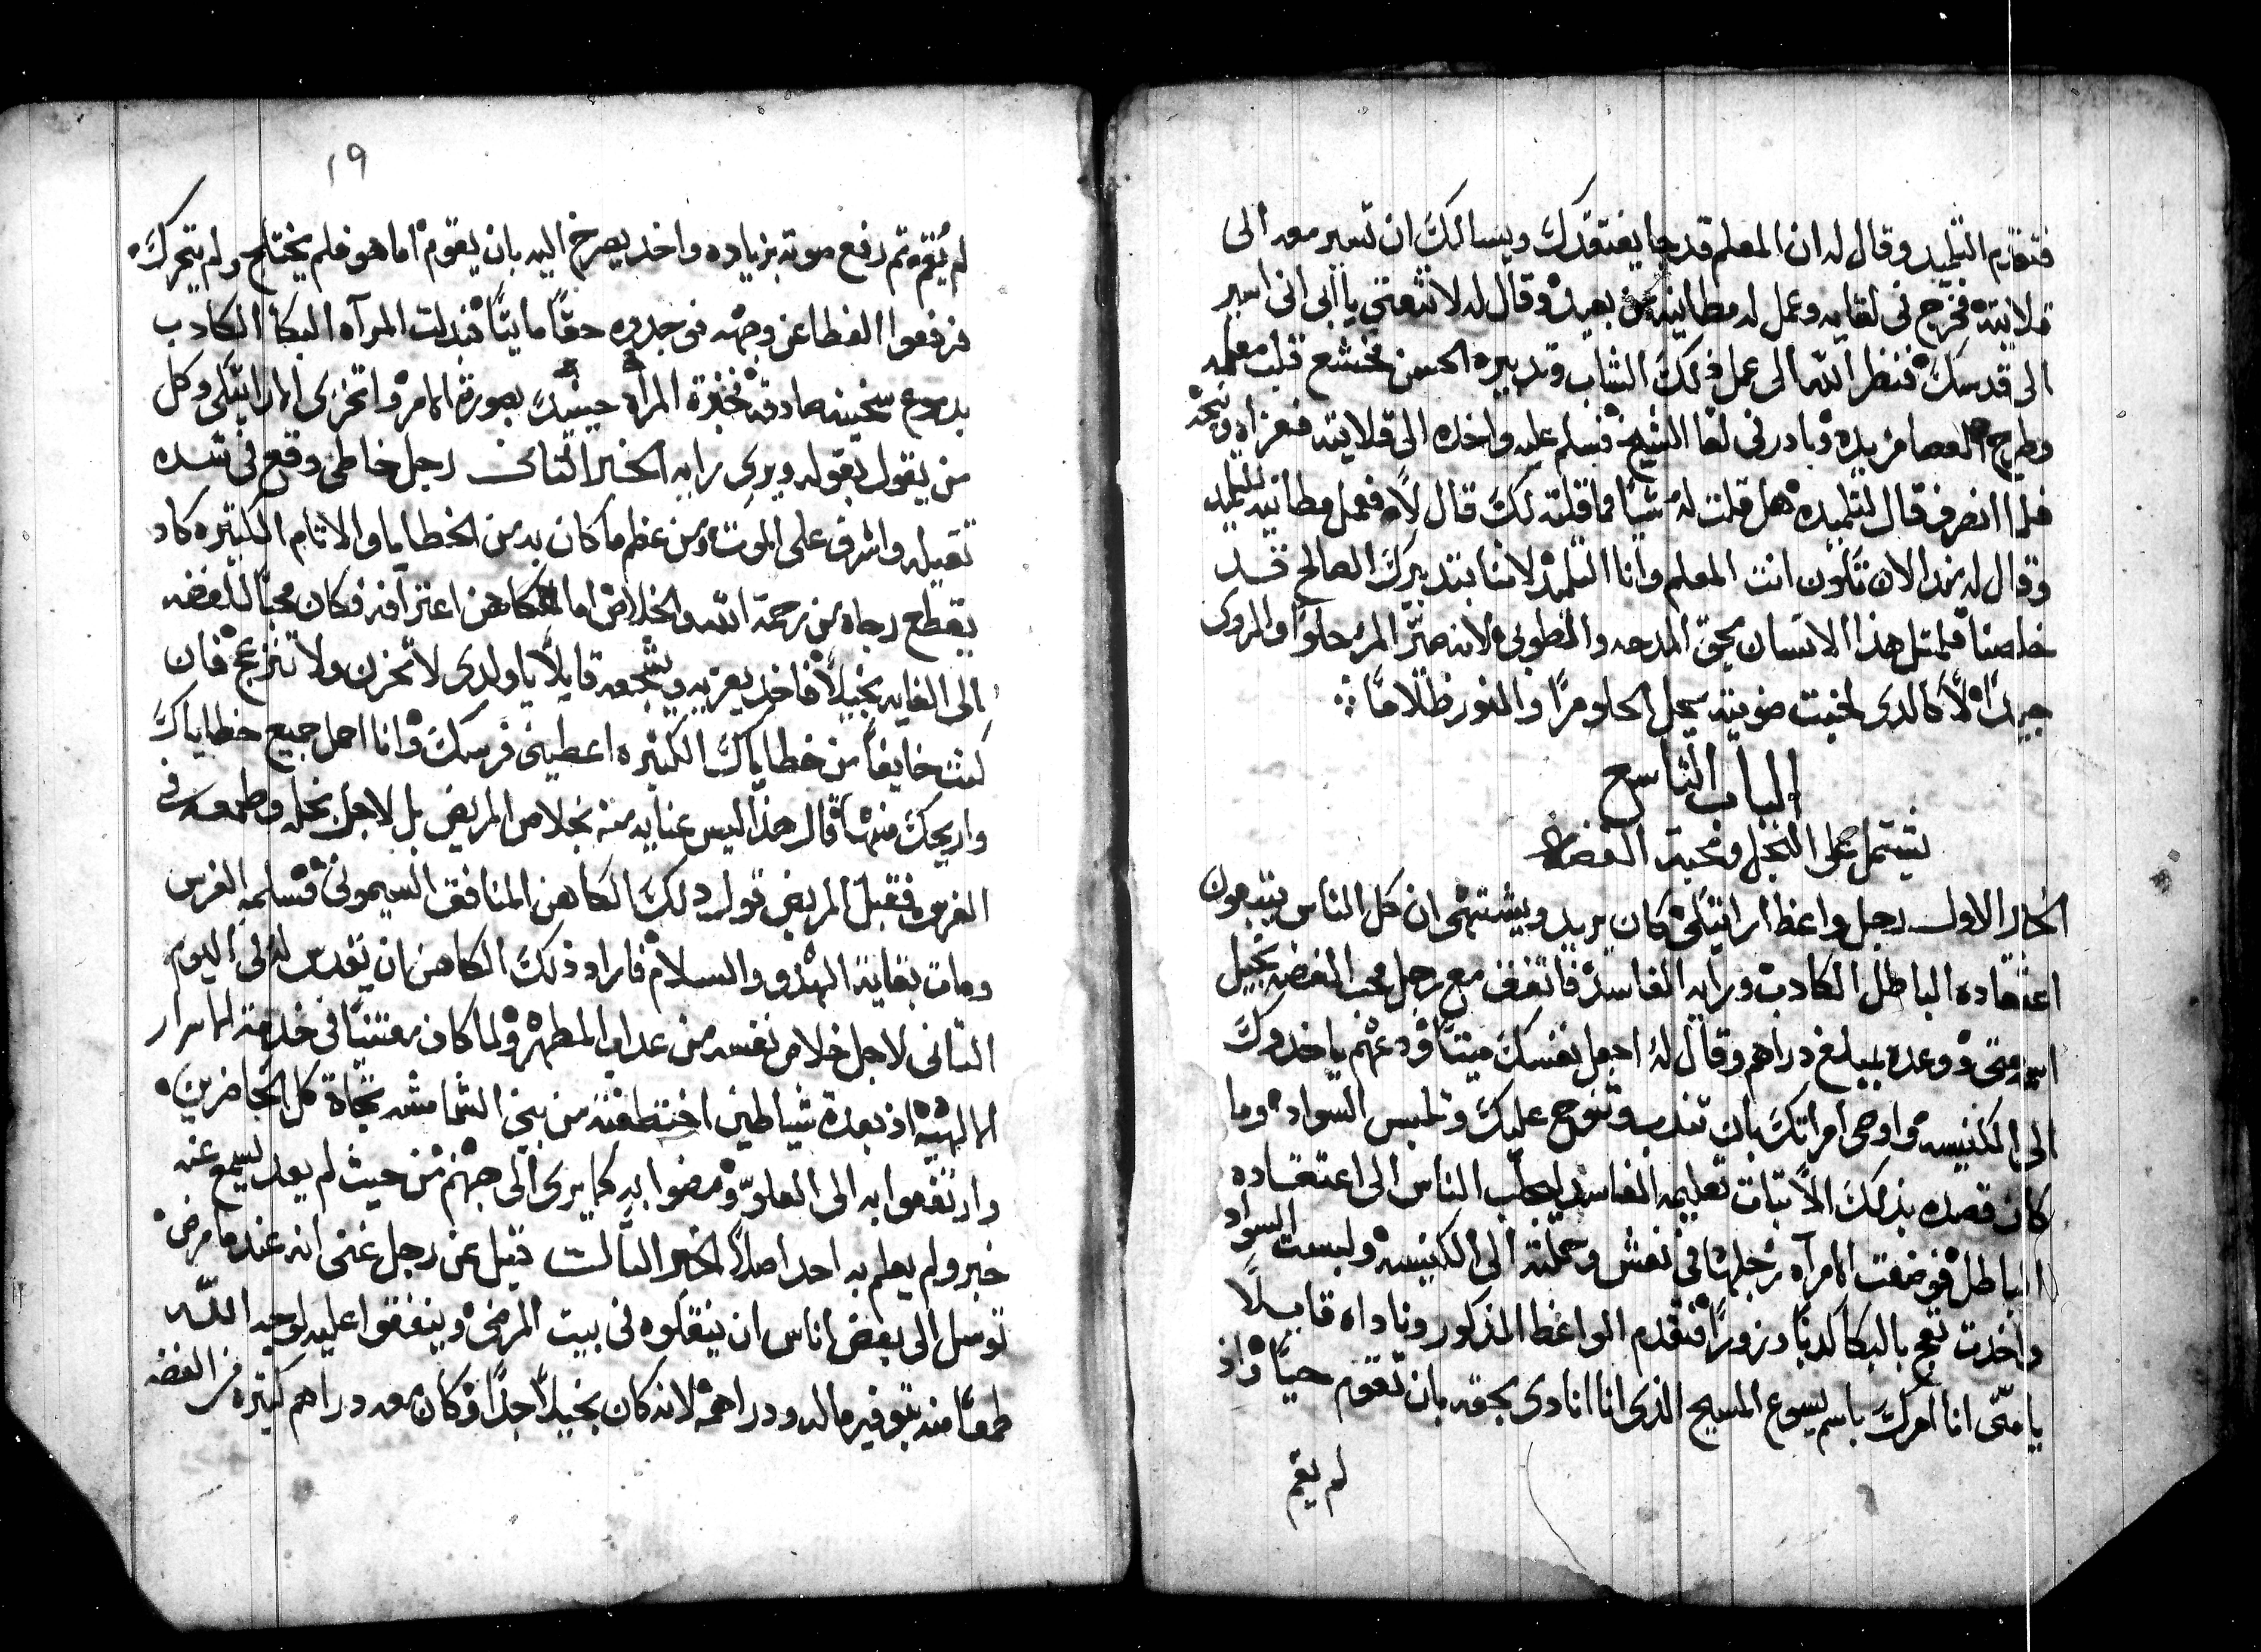 فتقدم التلميد وقال له ان المعلم قد جا يفتقدك ويسالك ان تسير معه الى
قلايته فخرج في لقايه وعمل له مطانيه من بعيد وقال له لا تتعني يا ابي اني اسير
الى قدسك فنظر الله الى عمل ذلك الشاب وتدبيره الحسن فخشع قلب معلمه
وطرح العصا من يده وبادر في لقا الشيخ فسلم عليه واخده الى قلايته فعزاه ونيحه
فلما انصرف قال لتلميده هل قلت له شيا مما قلته لك قال لا فعمل مطانيه للتلميد
وقال له مند الان تكون انت المعلم وانا التلميد لاننا بتدبيرك الصالح قد
خلصنا فلمثل هذا الانسان يحق المدحه والطوبى لانه صير المر حلوا والردى
جيدا لا كالدى لخبث ضويته يجعل الحلو مرا والنور ظلاما
الباب التاسع
يشتمل على البخل ومحبة الفضه
الخبر الاول رجل واعظ اراتيكي كان يريد ويشتهي ان كل الناس يتبعون
اعتقاده الباطل الكادب ورايه الفاسد فاتفق مع رجل محب الفضه بخيل
اسمه متى ووعده بمبلغ دراهم وقال له اجعل نفسك ميتا ودعهم ياخدوك
الى الكنيسه واوصى امراتك بان تندب وتنوح عليك وتلبس السواد وما
كان قصده بذلك الا تبات تعليمه الفاسد ليجلب الناس الى اعتقاده
الباطل فوضعت الامراه رجلها في نعش وحملته الى الكنيسه ولبست السواد
واخدت تعج بالبكا كدبا وزورا فتقدم الواعظ المذكور وناداه قايلا
يا متى انا امرك باسم يسوع المسيح الذي انا انادي بحقه بان تقوم حيا واذ
لم يقم
١٩
لم يقم تم رفع صوته بزياده واخد يصرخ اليه بان يقوم اما هو فلم يختلج ولم يتحرك
فرفعوا الغطا عن وجهه فوجدوه حقا مايتا فبدلت المرآه البكا الكادب
بدموع سخينه صادقه فخبرة المراه حينيد بصورة الامر واتخزى الاراتيكى وكل
من يقول بقوله ويرى رايه الخبر التانى رجل خاطى وقع في شده
تقيله واشرف على الموت ومن عظم ما كان به من الخطايا والاثام الكتيره كاد
يقطع رجاه من رحمة الله والخلاص اما الكاهن اعترافه فكان محبا للفضه
الى الغايه بخيلا فاخد يعزيه ويشجعه قايلا يا ولدى لا تحزن ولا تنزعج فان
كنت خايفا من خطاياك الكثيره اعطيني فرسك وانا احمل جميع خطاياك
واريحك منها قال هذا ليس عنايه منه بخلاص المريض بل لاجل بخله وطمعه في
الفرس فقبل المريض قول دلك الكاهن المنافق السيموني فسلمه الفرس
ومات بغاية الهدو والسلام فاراد ذلك الكاهن ان يقدس له في اليوم
التانى لاجل خلاص نفسه من عداب المطهر ولما كان معتنيا في خدمة الاسرار
الالهيه اذ بعدة شياطين اختطفته من بين الشمامسه تجاة كل الحاضرين
وارتفعوا به الى العلو ومضوا به كما يرى الى جهنم من حيث لم يعد يسمع عنه
خبر ولم يعلم به احد اصلا الخبر التالت قيل عن رجل غنى انه عندما مرض
توسل الى بعض اناس ان ينقلوه في بيت المرضى وينفقوا عليه لوجه الله
طمعا منه بتوفير ماله ودراهمه لانه كان بخيلا جدا وكان معه دراهم كتيره من الفضه